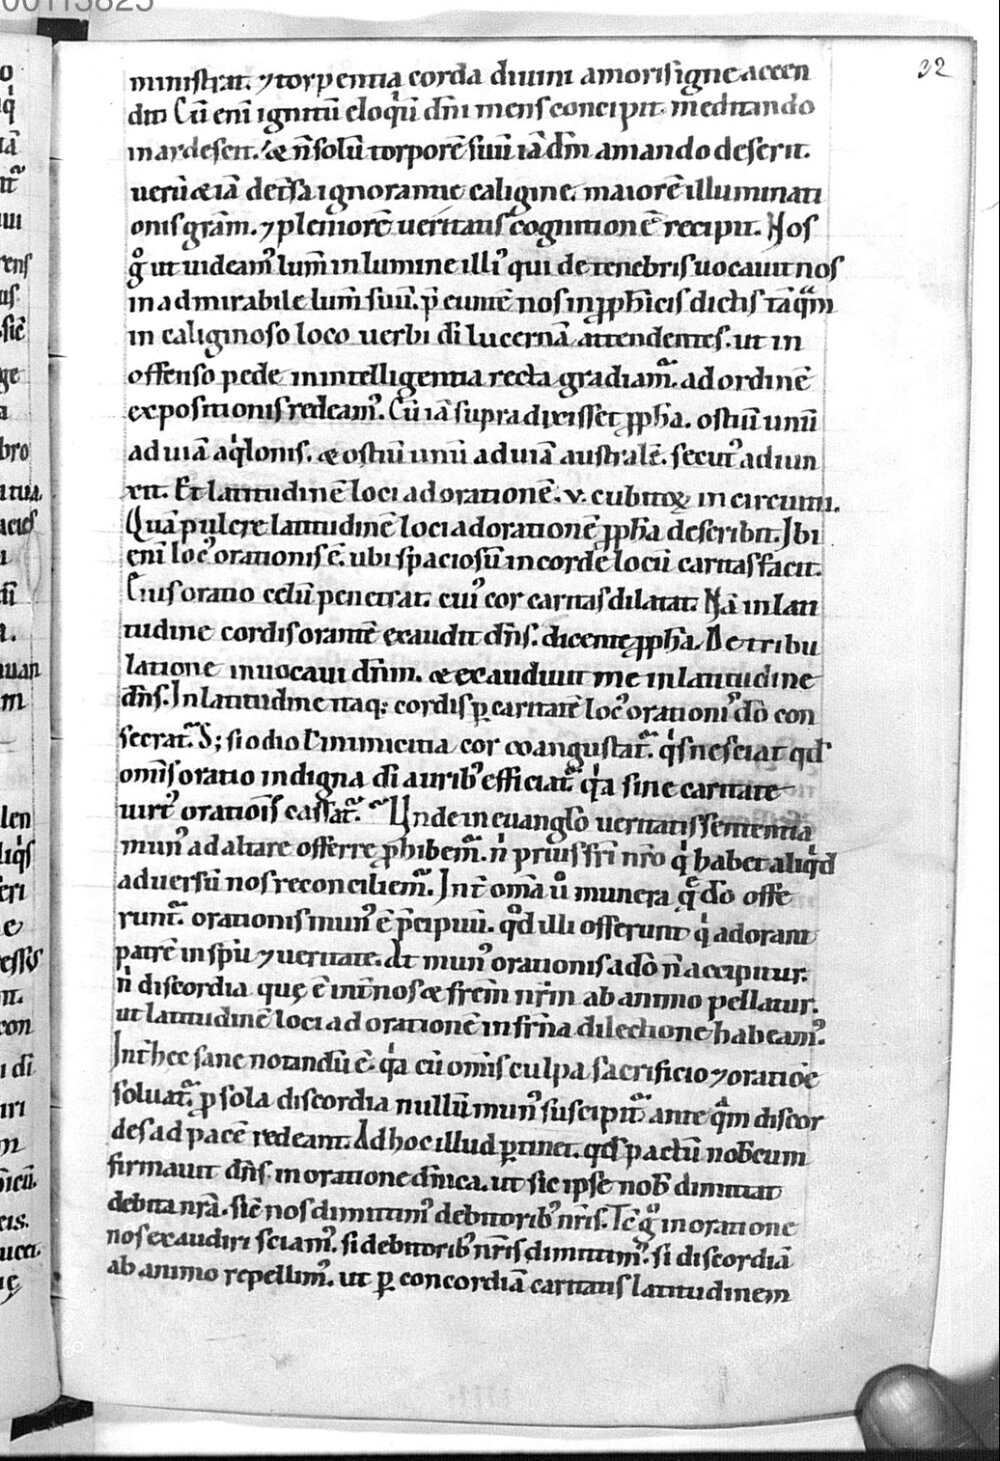 00113825
32
ministrat. ⁊ torpentia corda diuini amoris igne accen
dit Cū enī ignitū eloqͥū dn̄i mens concipit meditando
inardescit. & n̄ solū torporē suū iā dm̄ amando deserit.
uerū & iā det̄sa ignorantie caligine. maiorē illuminati
onis grām. ⁊ pleniorē ueritatis cognitionē recipit. Nos
g̊ ut uideamꝰ lum̄ in lumine illiꝰ qui de tenebris uocauit nos
in admirabile lum̄ suū. p̄eunte nos in ꝓphīcis dictis tāqͣm
in caliginoso loco uerbi dī lucernā attendentes. ut in
offenso pede in intelligentia recta gradiamᷓ. ad ordinē
expositionis redeamꝰ. Cū iā supra dixisset ꝓpha. ostiū unū
ad uiā aqͥlonis. & ostiū unū ad uiā australē. secutꝰ adiun
xit. Et latitudinē loci ad orationē. v. cubitoꝝ in circuitu.
Quā pulcre latitudinē loci ad orationē ꝓpha describit. Ibi
enī locꝰ orationis ē. ubi spaciosū in corde locū caritas facit.
Ciuꝰ oratio celū penetrat. cuiꝰ cor caritas dilatat. Nā in lati
tudine cordis orantē exaudit dn̄s. dicente ꝓpha. De tribu
latione inuocaui dn̄m. & exaudiuit me in latitudine
dn̄s. In latitudine itaq; cordis ꝑ caritatē locꝰ orationiꝰ dō con
secratᷓ. S; si odio ł inimicitia cor coangustatᷓ. qͥs nesciat qđ
om̄is oratio indigna dī auribꝰ efficiatᷓ. qͥa sine caritate
uirtꝰ oratiōis cassatᷓ. Unde in euangł̄o ueritatis sententia
munꝰ ad altare offerre ꝓhibemᷓ. n̄ prius fr̄i nr̄o qͥ habet aliqͥd
aduersū nos reconciliemᷓ. Int̄ om̄a ů munera qͣ dō offe
runtᷓ. orationis munꝰ ē p̄cipuū. qd̊ illi offerunt qͥ adorant
patrē in spū ⁊ ueritate. At munꝰ orationis a dō n̄ accipitur.
n̄ discordia quę ē int̄ nos & frem̄ nr̄m ab animo pellatur.
ut latitudinē loci ad orationē in fr̄na dilectione habeamꝰ.
Int̄ hec sane notandū ē. qͥa cū om̄is culpa sacrificio ⁊ oratiōe
soluatᷓ. ꝓ sola discordia nullū munꝰ suscipitᷓ ante qͣm discor
des ad pacē redeant. Ad hoc illud ꝑtinet. qđ pactū nobcum
firmauit dn̄s. in oratione dn̄ica. ut sic ipse nob dimittat
debita nr̄a. sic̄ nos dimittimꝰ debitoribꝰ nr̄is. Tc̄ gͦ in oratione
nos exaudiri sciamꝰ. si debitoribꝰ nr̄is dimittimꝰ. si discordiā
ab animo repellimꝰ. ut ꝑ concordiā caritatis latitudinem